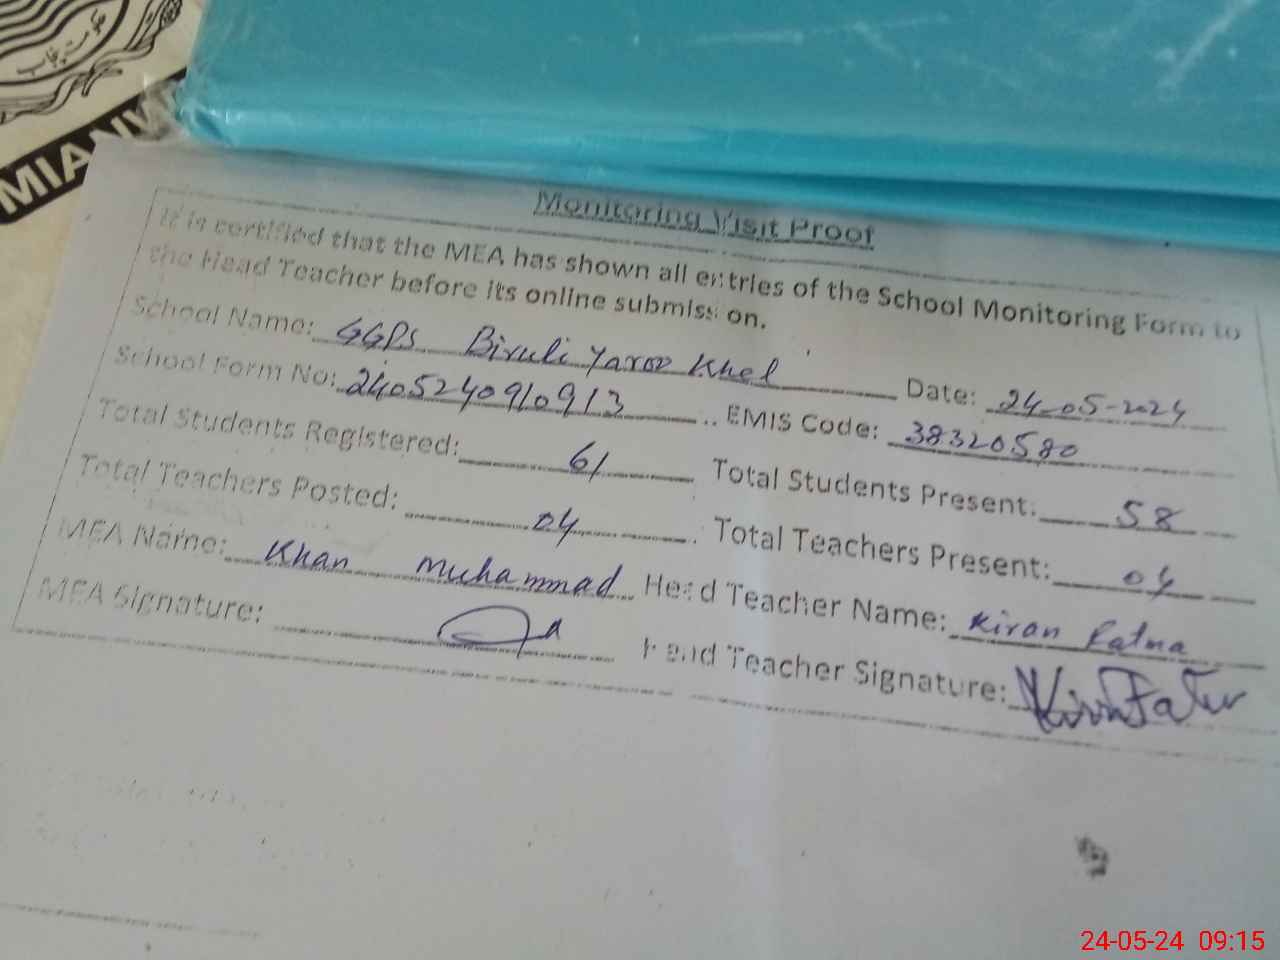 حکومت پنجاب
MIANW
Monitoring Visit Proof
It is certified that the MEA has shown all entries of the School Monitoring Form to
the Head Teacher before its online submission.
School Name: GGPS Biruli Yaroo Khel Date: 24-05-2024
School Form No: 2405240910913 EMIS Code: 38320580
Total Students Registered: 61 Total Students Present: 58
Total Teachers Posted: 04 Total Teachers Present: 04
MEA Name: Khan Muhammad Head Teacher Name: Kiran Fatma
MEA Signature: Head Teacher Signature:
24-05-24 09:15